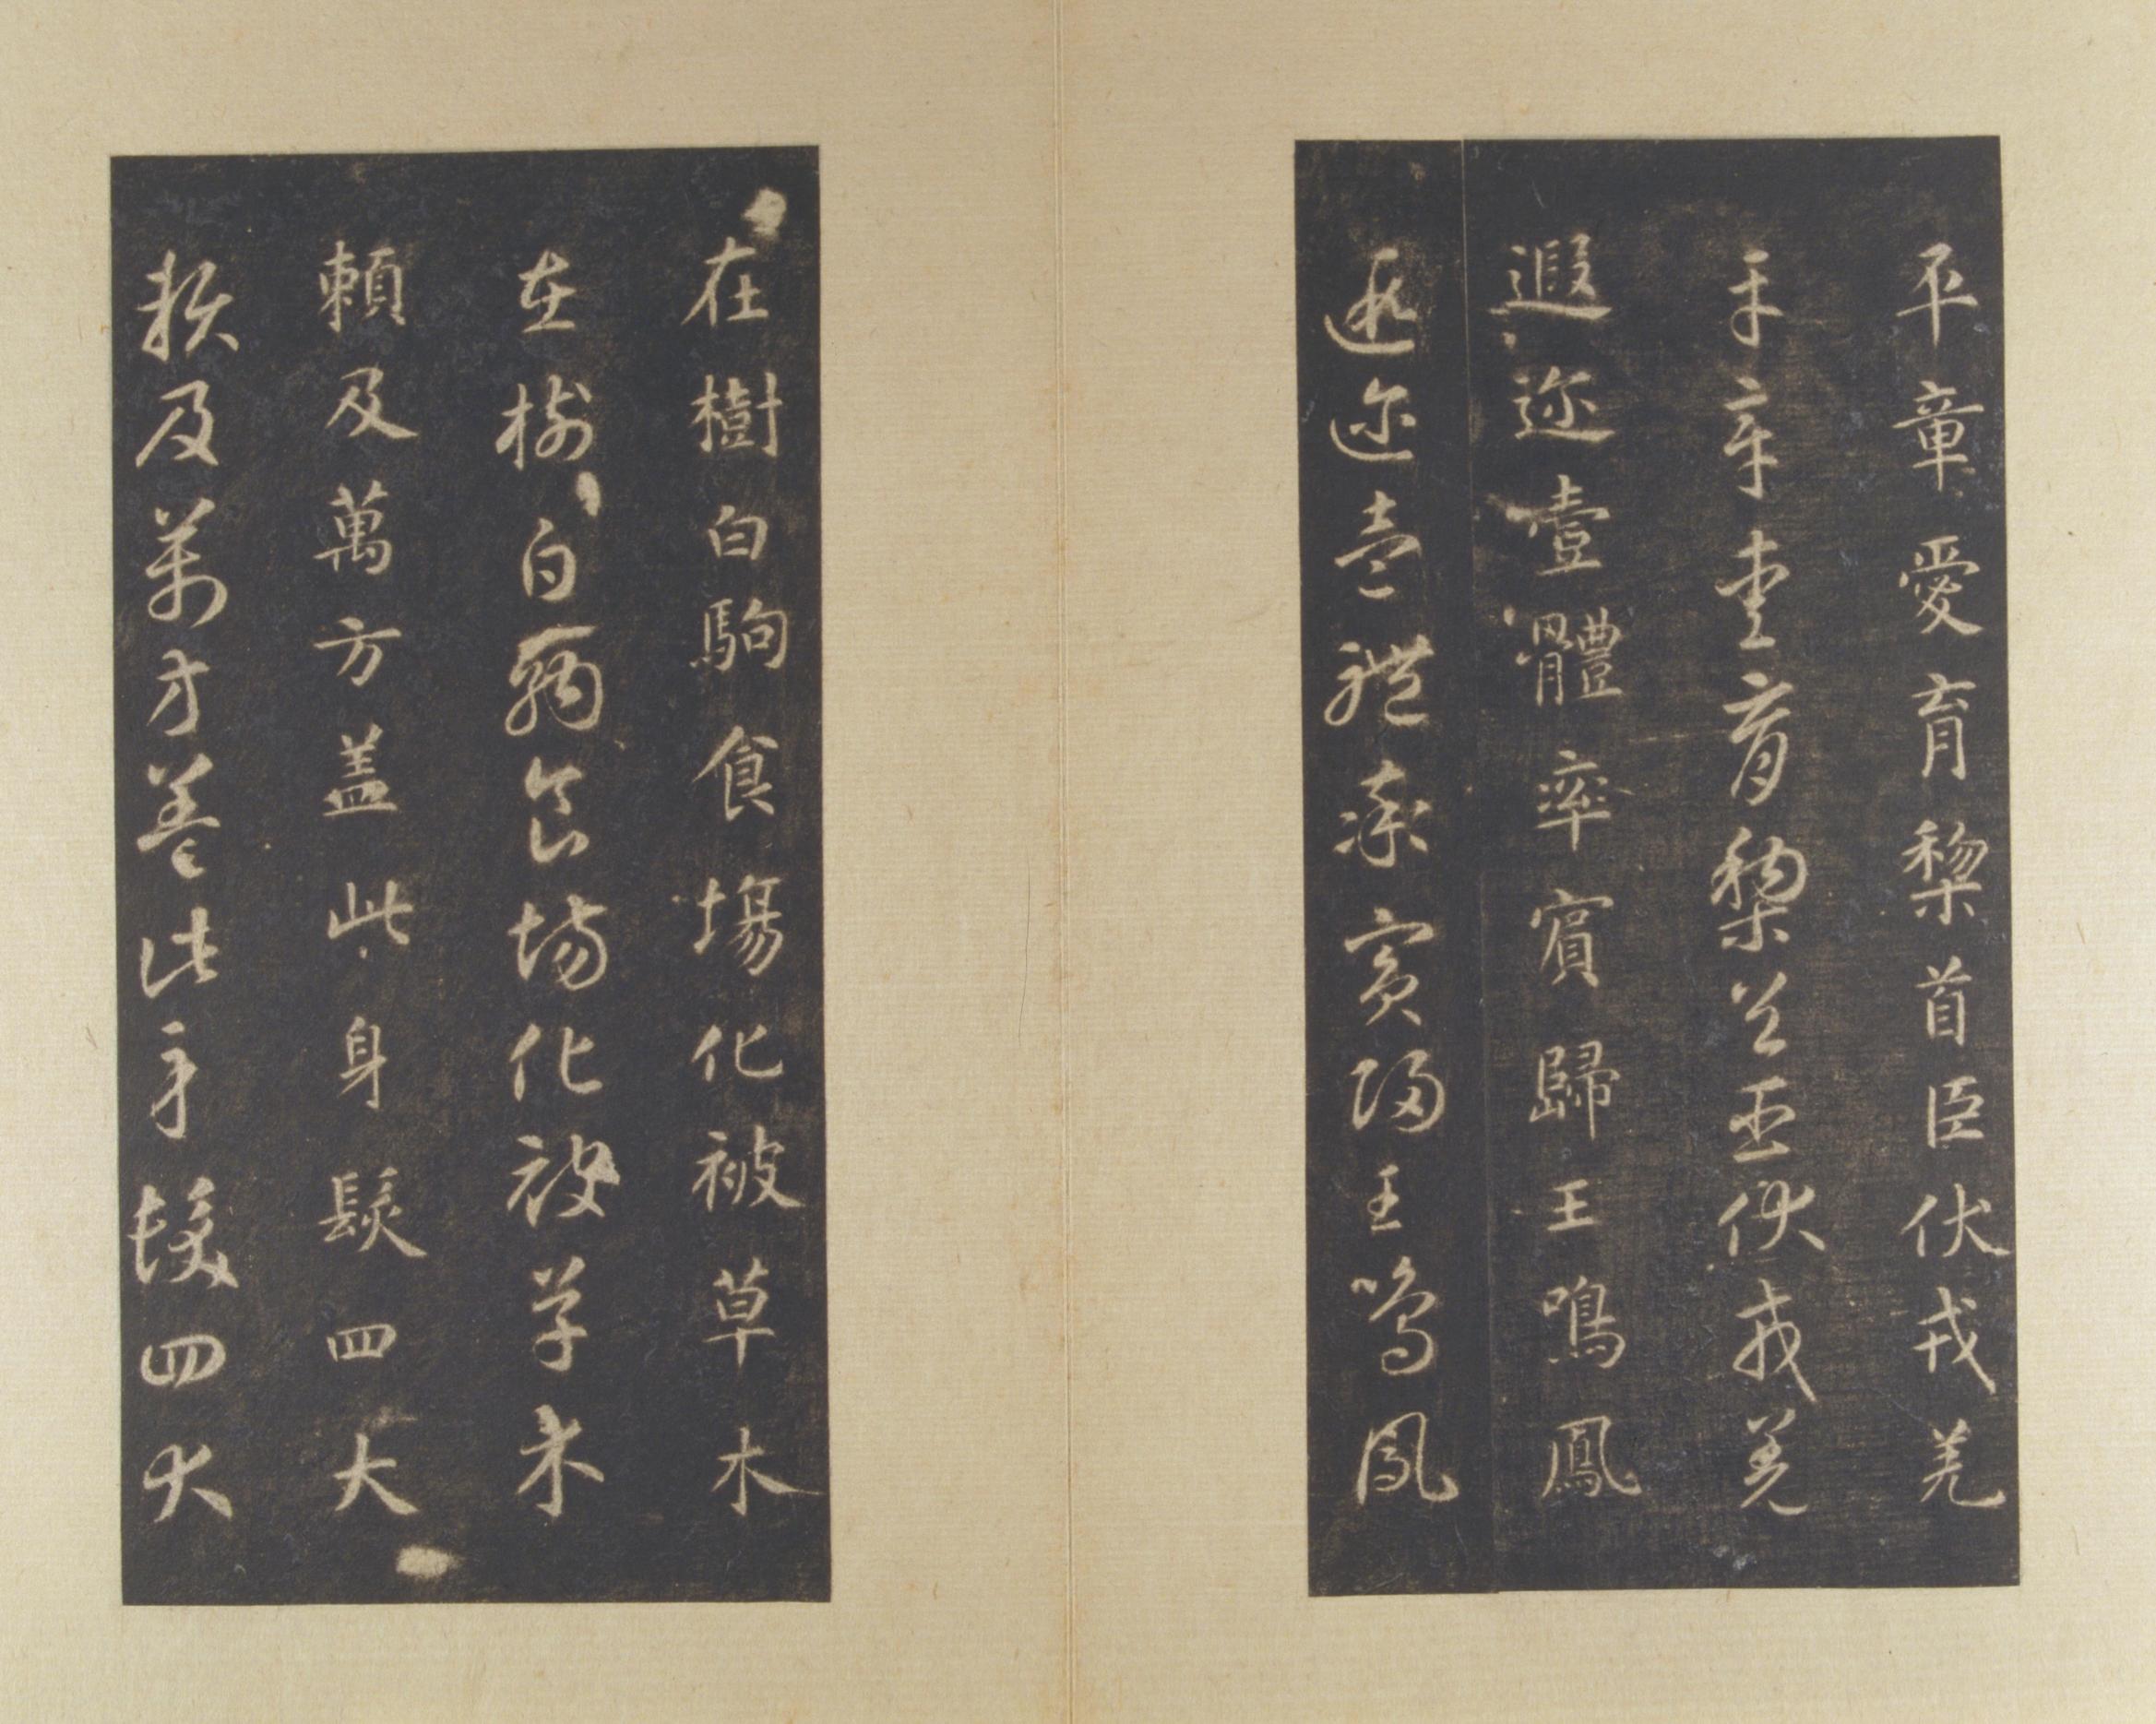 平章愛育黎首臣伏戎羌
平章愛育黎首臣伏戎羌
遐迩壹體率賔歸王鳴鳳
遐迩壹體率賔歸王鳴鳳
在樹白駒食塲化被草木
在樹白駒食塲化被草木
頼及萬方盖此身髮四大
頼及萬方盖此身髮四大